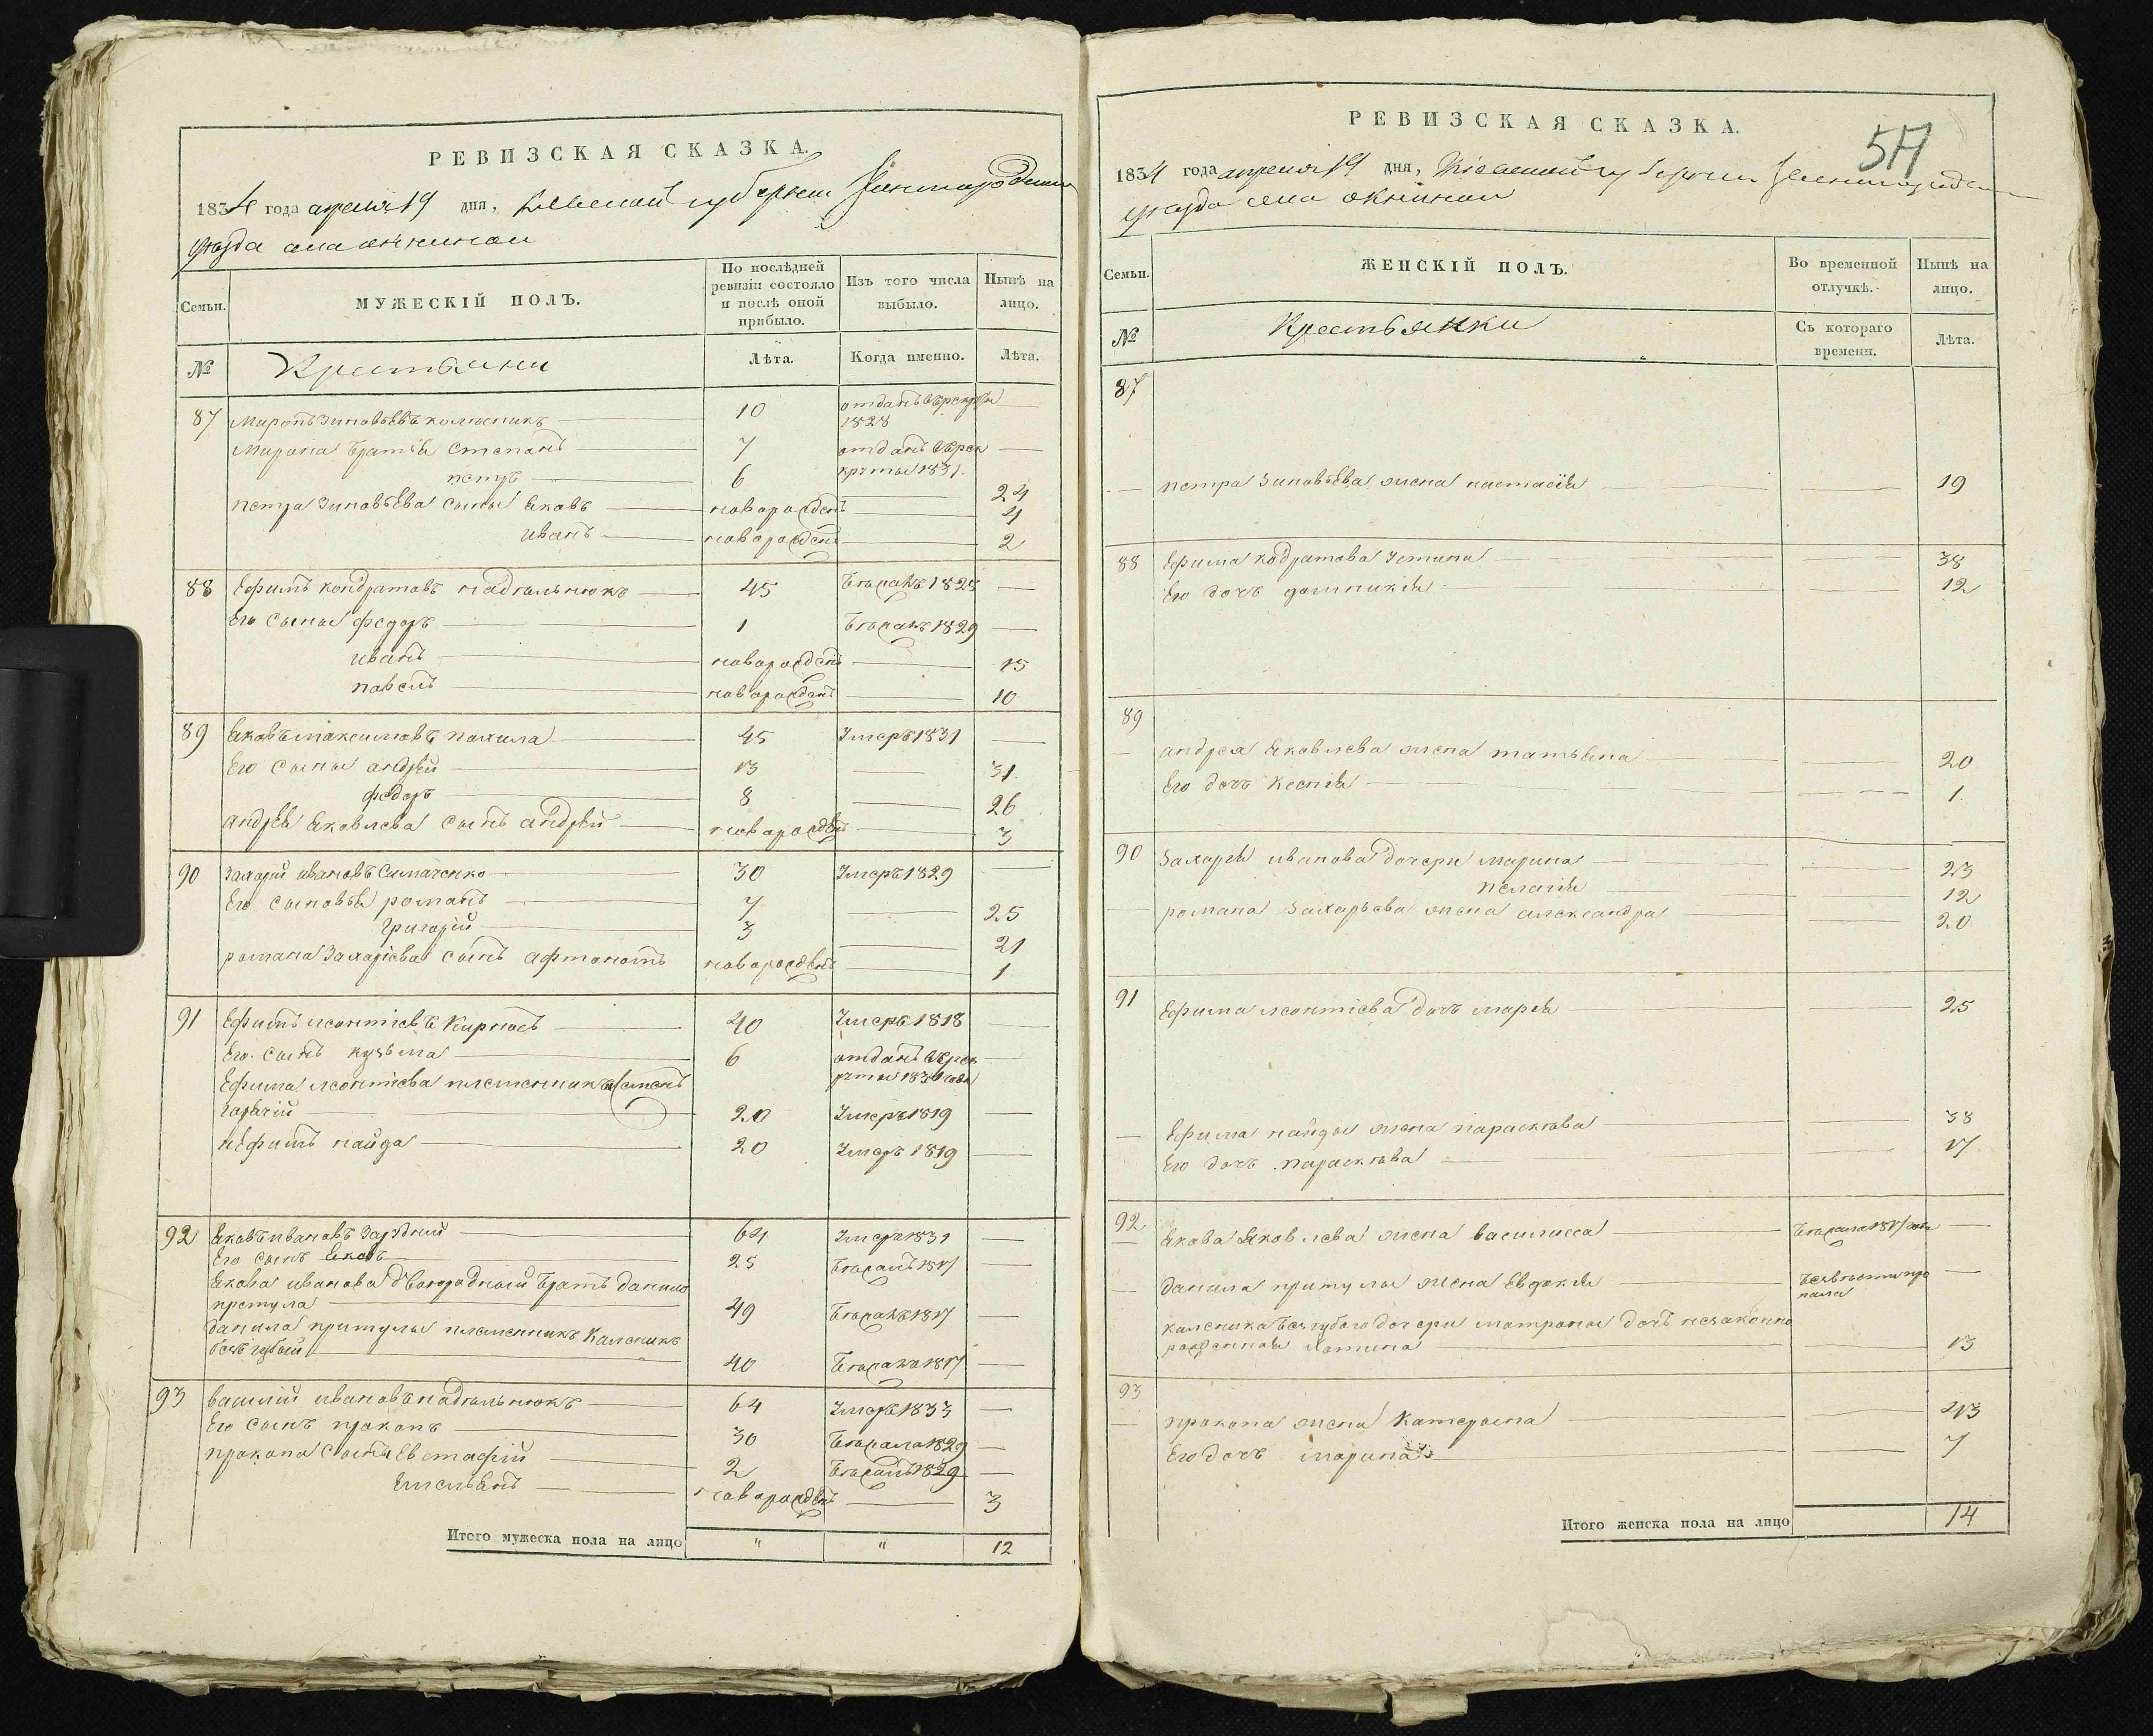 РЕВИЗСКАЯ СКАЗКА.
1834 года апреля 19 дня, Киевской губернии Звенигородскаго
уезда села окнинои
Семьи.
МУЖЕСКІЙ ПОЛЪ.
По послѣдней ревизіи состояло и послѣ оной прибыло.
Изъ того числа выбыло.
Нынѣ на лицо.
№
Крестьяни
Лѣта.
Когда именно.
Лѣта.
87 Миронъ Зиновьевъ колесникъ 10 отданъ въ рекруты 1828
Мирона братья Степанъ 7 отданъ въ рек
круты 1831
петръ 6 24
петра Зиновьева сыны Яковъ новорожденъ 4
иванъ новорожденъ 2
88 Ефимъ Кондратовъ надгальнюкъ 45 бежалъ 1825
Его сыны федоръ 1 бежалъ 1829
иванъ новорожденъ 15
павелъ новорожденъ 10
89 Яковъ Максимовъ похила 45 Умеръ 1831
Его сыны андрей 13 31
федоръ 8 26
андрея Яковлева сынъ андрей новорожденъ 3
90 Захарій ивановъ Симаченко 30 Умеръ 1829
Его сыновья романъ 7 25
Григорій 3 21
романа Захаріева сынъ афтономъ новорожденъ 1
91 Ефимъ леонтіевъ Кирносъ 40 Умеръ 1818
Его сынъ кузьма 6 отданъ въ рек
руты 183 года
Ефима леонтіева племенникъ Семенъ
гарячій 20 Умеръ 1819
Ефимъ найда 20 Умеръ 1819
92 Яковъ ивановъ Зарудній 64 Умеръ 1831
Его сынъ Яковъ 25 бежалъ 1817
Якова иванова двоюродный братъ Данило
притула 49 бежалъ 1817
Данила притулы племенникъ Каленикъ
безъ губый 40 бежалъ 1817
93 Василій ивановъ надгальнюкъ 64 Умеръ 1833
Его сынъ прокопъ 30 бежалъ 1829
прокопа сыны Евстафій 2 бежалъ 1829
Емельянъ новорожденъ 3
Итого мужеска пола на лицо " " 12
РЕВИЗСКАЯ СКАЗКА.
57
1834 года апреля 19 дня, Кіевской губернии Звенигородскаго
уезда села окнинои
Семьи.
ЖЕНСКІЙ ПОЛЪ.
Во временной отлучкѣ.
Нынѣ на лицо.
№
Крестьянки
Съ котораго времени.
Лѣта.
87
петра Зиновьева жена настасія 19
88 Ефима кодратова Устина 38
Его дочь домникия 12
89
андрея Яковлева жена татьяна 20
Его дочь Ксенія 1
90 Захарія иванова дочери марина 23
пелагія 12
романа Захарьева жена александра 20
91 Ефима леонтіева дочь марія 25
Ефима найды жена парасковія 38
Его дочь парасковія 17
92 Якова Яковлева жена василиса бежала 1817 года
Данила притулы жена Евдокія безвести про
пала
каленика безгубого дочери матроны дочь незаконно
рожденная 13
93
прокопа жена Катерына 43
Его дочь марина 7
Итого женска пола на лицо 14